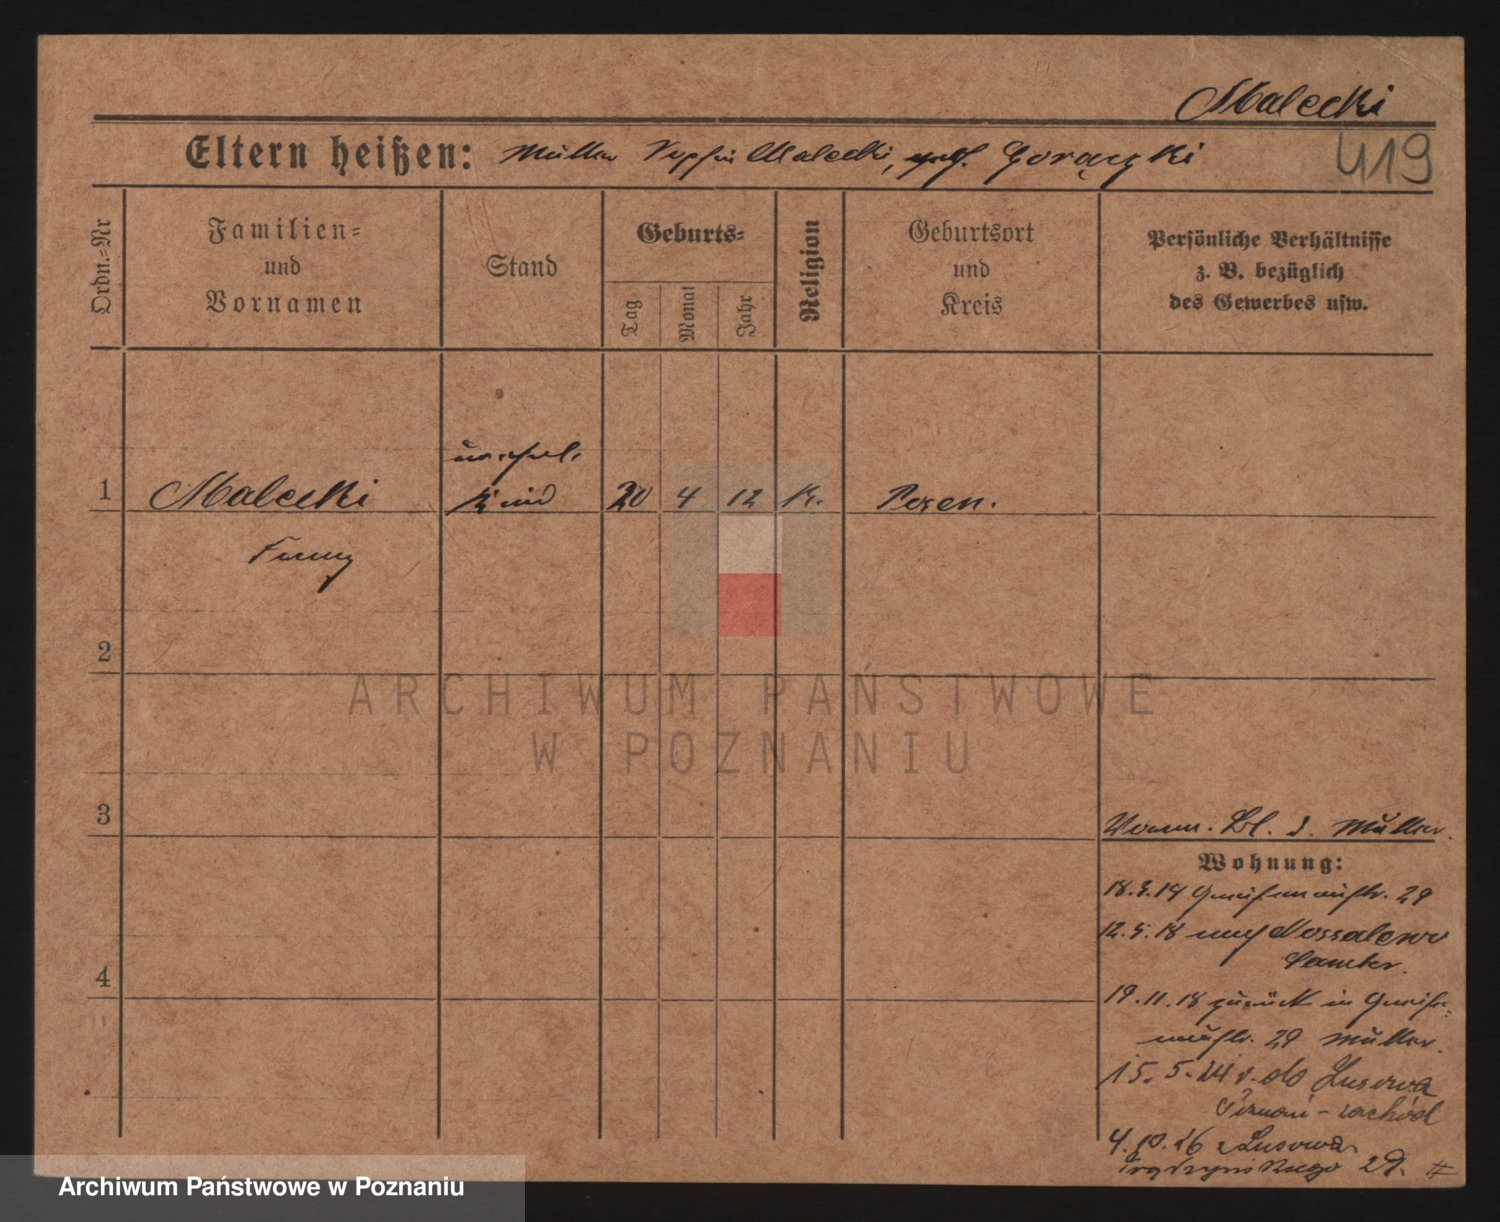 Malecki
Eltern heißen: Mutter Sophie Malecki, gesch. Gorączki
419
Ordn.-Nr
Familien-
und
Vornamen
Stand
Geburts-
Tag
Monat
Jahr
Religion
Geburtsort
und
Kreis
Persönliche Verhältnisse
z. B. bezüglich
des Gewerbes usw.
unehel.
1 Malecki Kind 20 4 12 K. Posen.
2
ARCHIWUM PAŃSTWOWE
W POZNANIU
3
Bl. d. Mutter.
Wohnung:
18.3.14 Gneisenaustr. 29
12.5.18 nach
Samter.
19.11.18 zurück in Gneise-
naustr. 29 Mutter.
4
15.5.24 r. do Lusowa
Poznań-zachód
4.10.26 z Lusowa
29. #
Archiwum Państwowe w Poznaniu